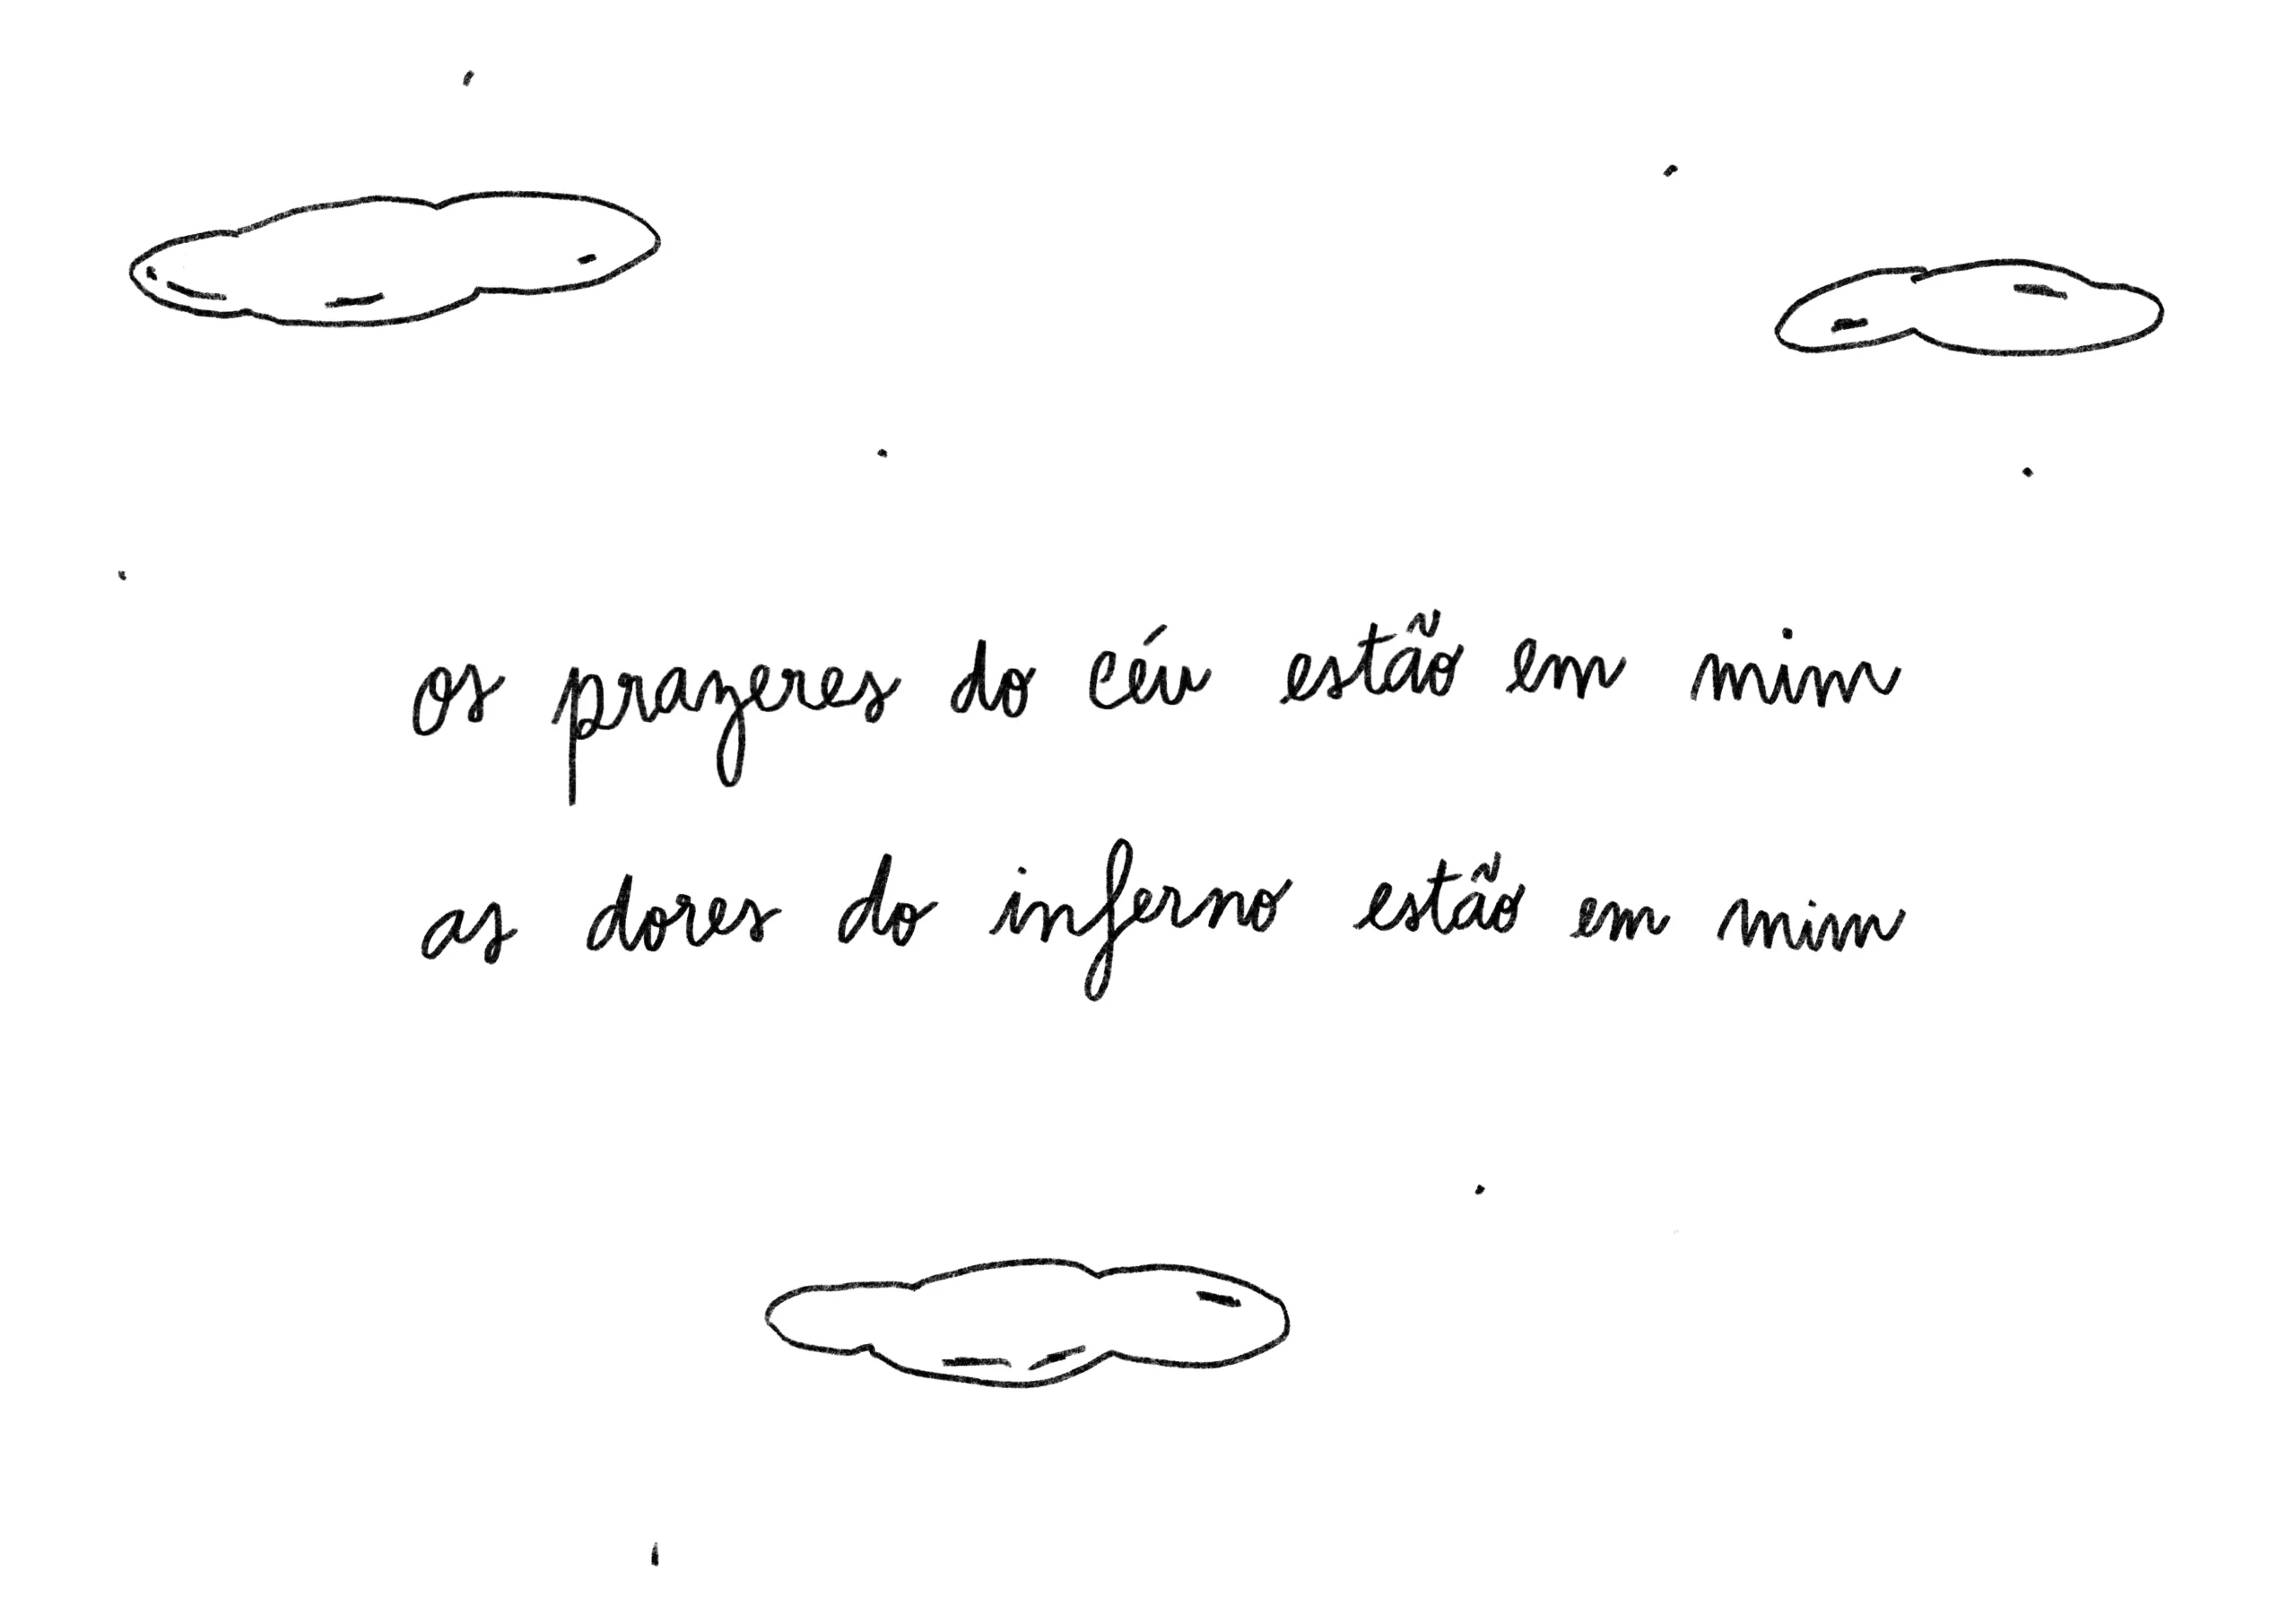 os prazeres do céu estão em mim
as dores do inferno estão em mim